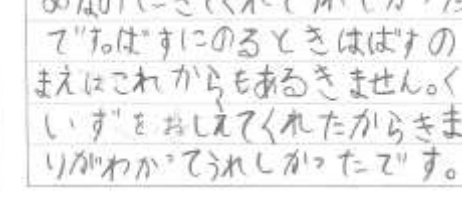 のなかにきてくれてうれしかった
で"す。ば"すにのるときはばすの
まえはこれからもあるきません。く
いず"をおしえてくれたからきま
りがわかってうれしかったで"す。